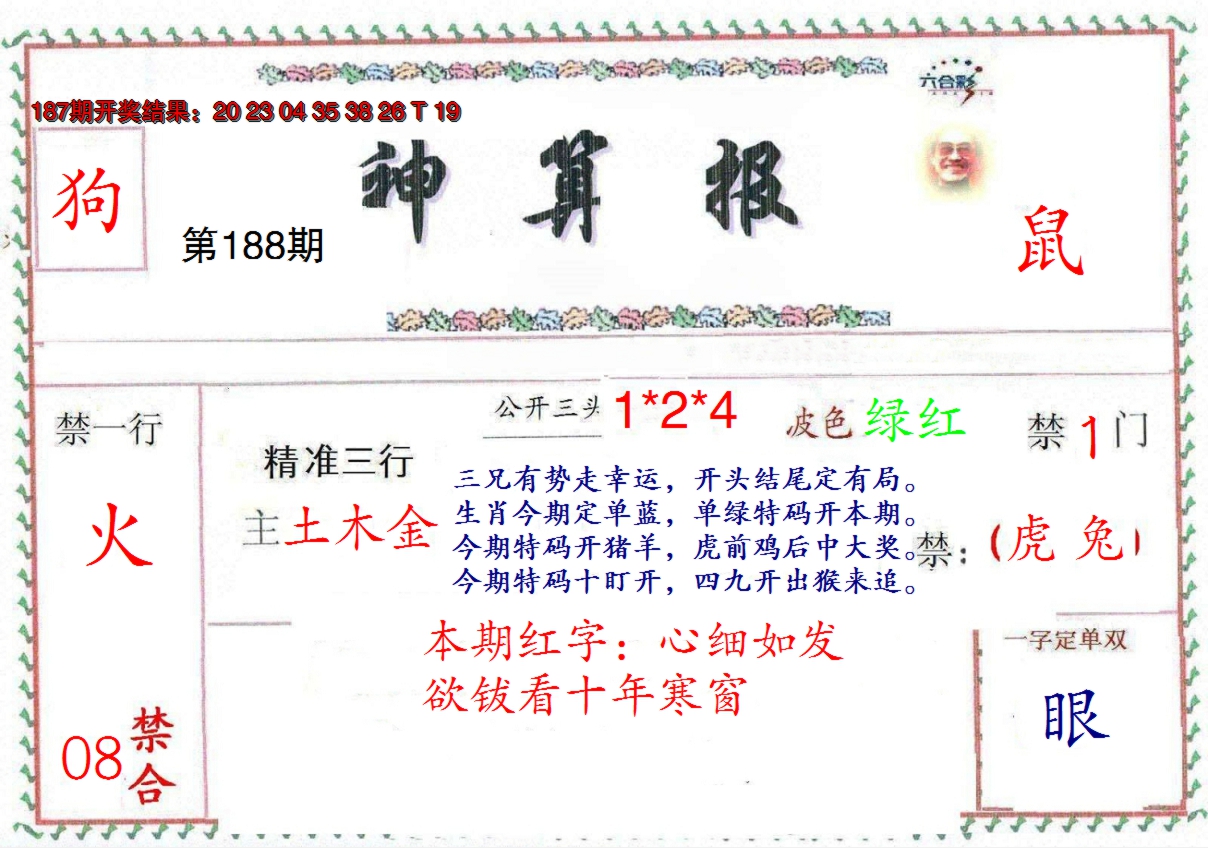 六合彩
187期开奖结果：20 23 04 35 38 26 T 19
狗
神算报
第188期
鼠
公开三头 1*2*4
波色 绿红
禁1门
禁一行
火
精准三行
主土木金
三兄有势走幸运，开头结尾定有局。
生肖今期定单蓝，单绿特码开本期。
今期特码开猪羊，虎前鸡后中大奖。
今期特码十盯开，四九开出猴来追。
禁：(虎 兔)
本期红字：心细如发
欲钹看十年寒窗
一字定单双
眼
08 禁合